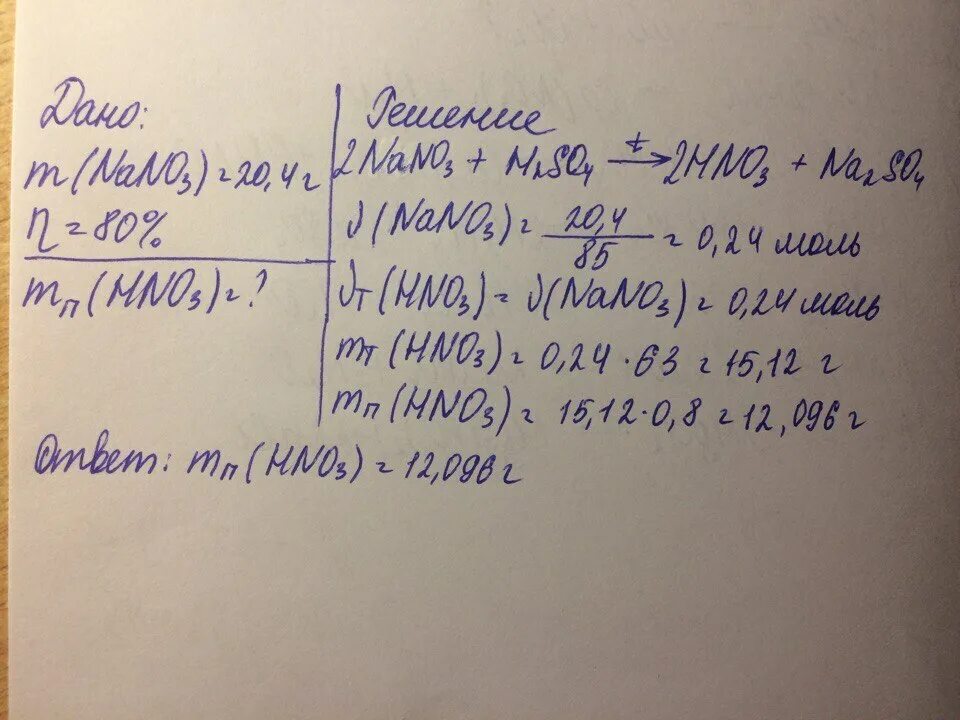 Дано:
m(NaNO₃)=20,4г
η=80%
mп(HNO₃)=?
Решение
2NaNO₃ + H₂SO₄ →t 2HNO₃ + Na₂SO₄
ν(NaNO₃) = 20,4/85 = 0,24 моль
νт(HNO₃) = ν(NaNO₃) = 0,24 моль
mт(HNO₃) = 0,24·63 = 15,12 г
mп(HNO₃) = 15,12·0,8 = 12,096 г
Ответ: mп(HNO₃) = 12,096 г